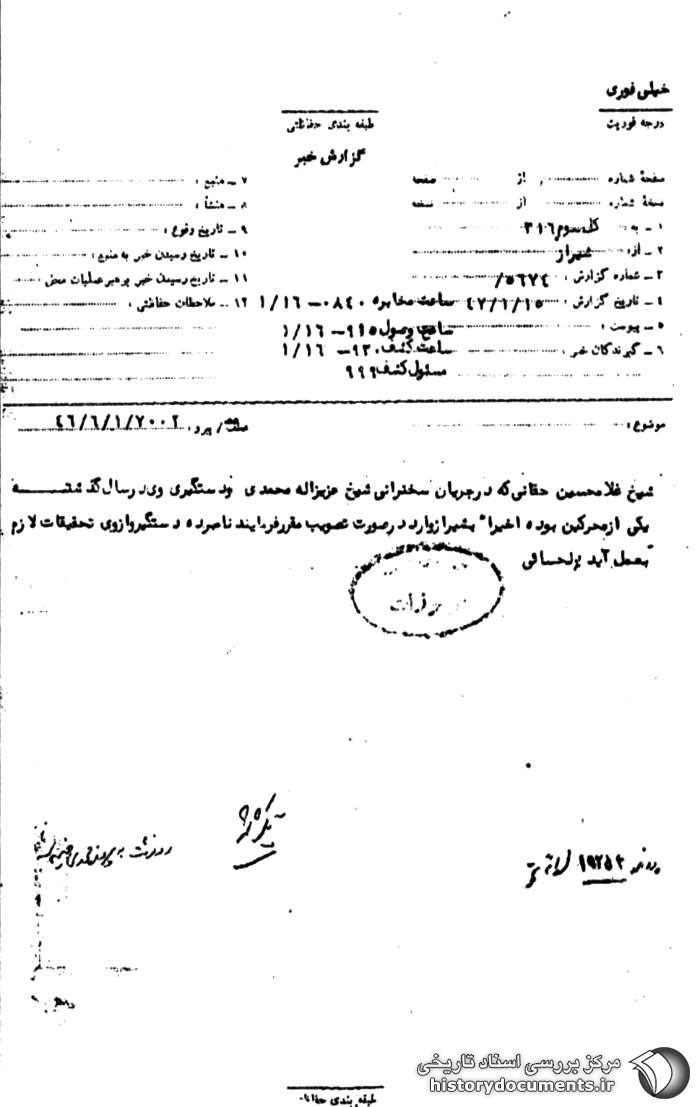 خیلی فوری
درجه فوریت
طبقه بندی حفاظتی
گزارش خبر
صفحهٔ شماره از صفحه
نسخهٔ شماره از نسخه
۱ - به : کل سوم ۳۱۶
۲ - از : شیراز
۳ - شماره گزارش : ۵۶۷۴/
۴ - تاریخ گزارش : ۴۷/۱/۱۵ ساعت مخابره ۰۸۴۰ - ۱/۱۶
۵ - پیوست : ساعت وصول ۹۱۵ - ۱/۱۶
۶ - گیرندگان خبر : ساعت کشف ۹۳۰ - ۱/۱۶
مسئول کشف ۹۹۹
۷ - منبع :
۸ - منشأ :
۹ - تاریخ وقوع :
۱۰ - تاریخ رسیدن خبر به منبع :
۱۱ - تاریخ رسیدن خبر به رهبر عملیات محل :
۱۲ - ملاحظات حفاظتی :
موضوع : / پیرو : ۴۶/۶/۱/۷۰۰۲
شیخ غلامحسین حقانی که در جریان سخنرانی شیخ عزیزاله محمدی و دستگیری وی در سال گذشته
یکی از محرکین بوده اخیرا" بشیراز وارد در صورت تصویب مقرر فرمایند نامبرده دستگیر و از وی تحقیقات لازم
بعمل آید
طبقه بندی حفاظتی
مرکز بررسی اسناد تاریخی
historydocuments.ir